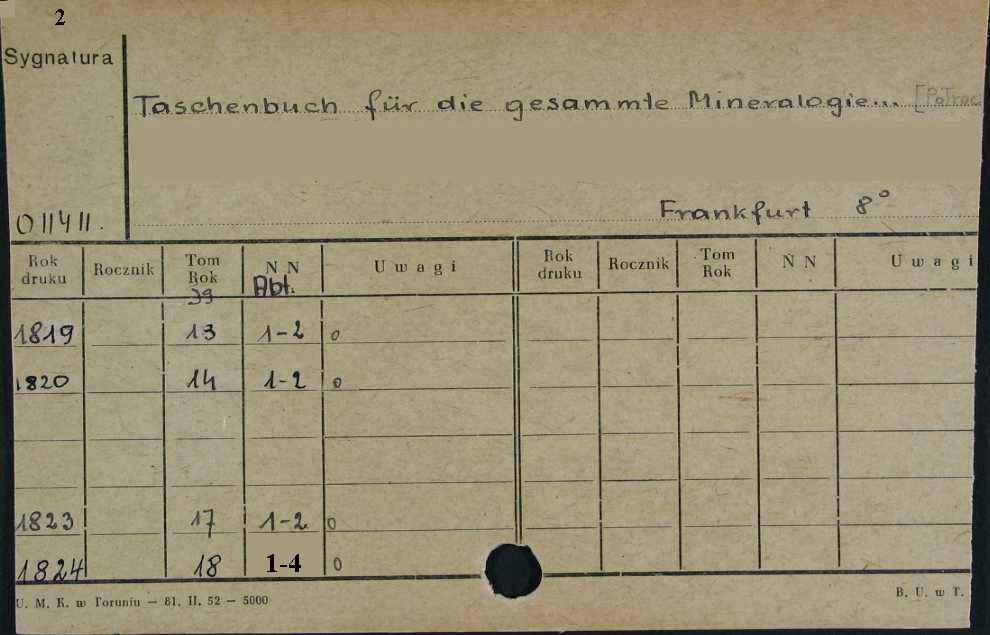 2
Sygnatura
Taschenbuch für die gesammte Mineralogie...
Frankfurt 8°
011411.
Rok druku Rocznik Tom Rok N N Uwagi Rok druku Rocznik Tom Rok N N Uwagi
Jg Abt.
1819 13 1-2 0
1820 14 1-2 0
1823 17 1-2 0
1824 18 1-4 0
U. M. K. w Toruniu — 81. II. 52 — 5000
B. U. w T.